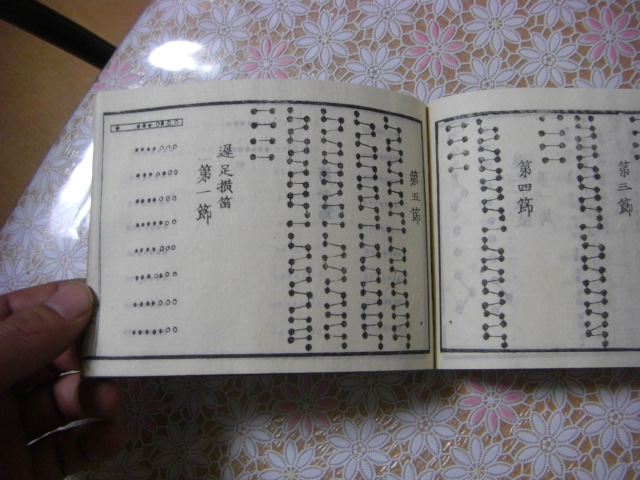 第三節
第四節
第五節
遅足横笛
第一節